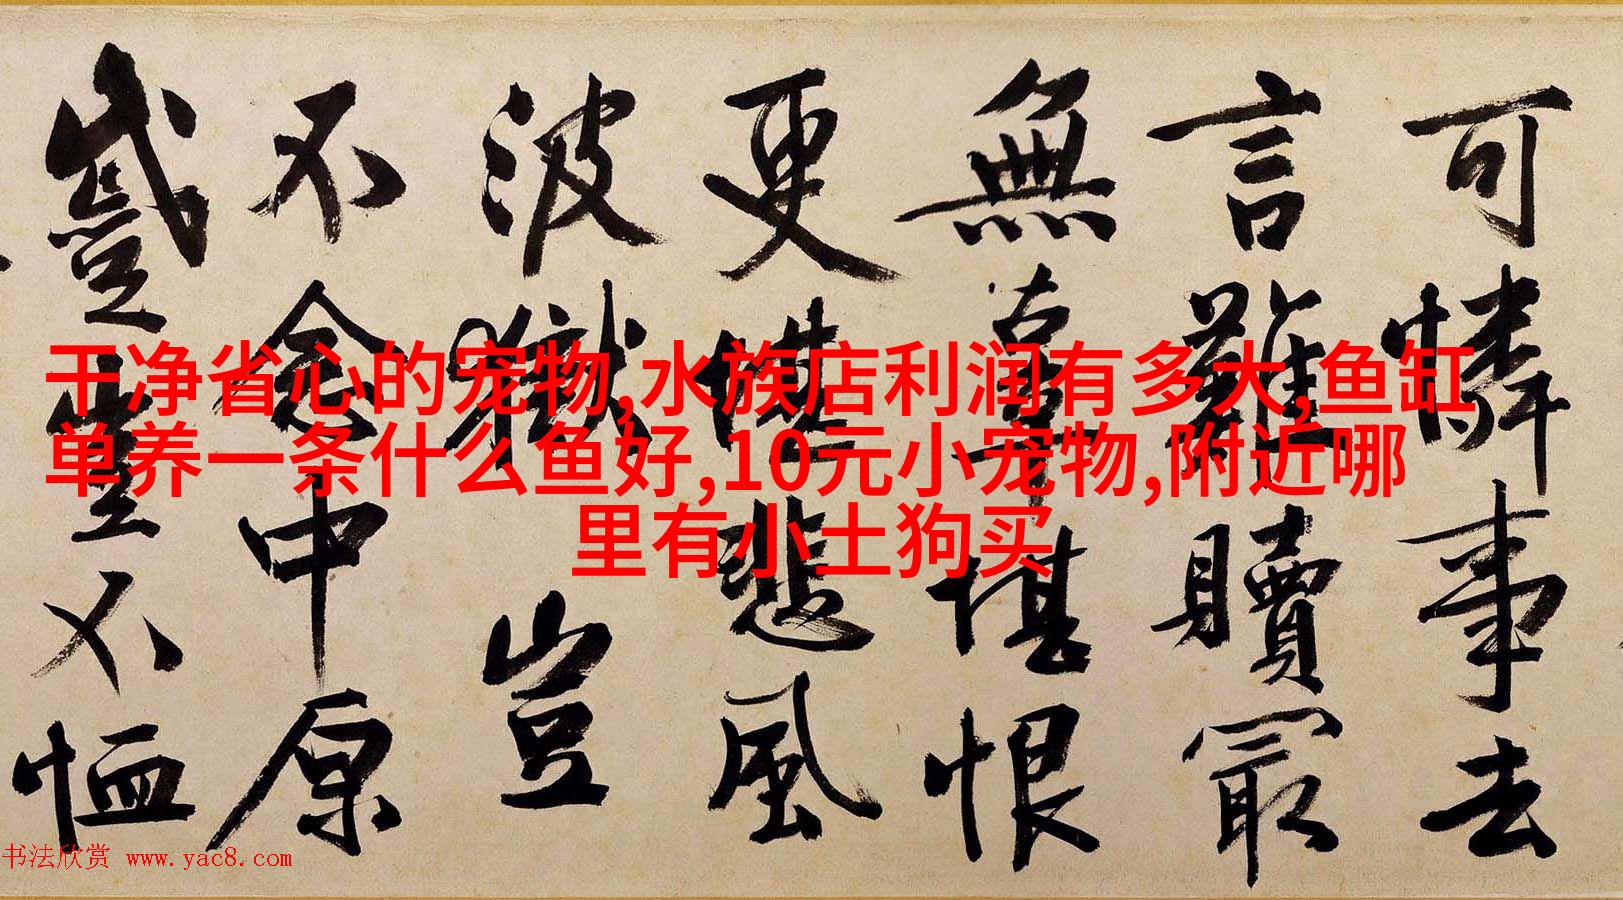 可憐事去
言難贖冣
無辜堪恨
更堪悲風
波獄豈
不念中原
蹙豈不恤
干净省心的宠物,水族店利润有多大,鱼缸
单养一条什么鱼好,10元小宠物,附近哪
里有小土狗买
书法欣赏 www.yac8.com